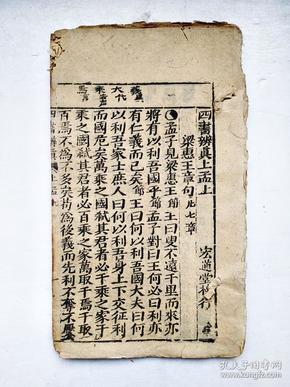 四書辨真上孟上
梁惠王章句凡七章
宏道堂梓行
孟子見梁惠王節王曰叟不遠千里而來亦
將有以利吾國乎節孟子對曰王何必曰利亦
有仁義而已矣節王曰何以利吾國大夫曰何
以利吾家士庶人曰何以利吾身上下交征利
而國危矣萬乘之國弒其君者必千乘之家千
乘之國弒其君者必百乘之家萬取千焉千取
百焉不為不多矣苟為後義而先利不奪不饜
孔夫子旧书网